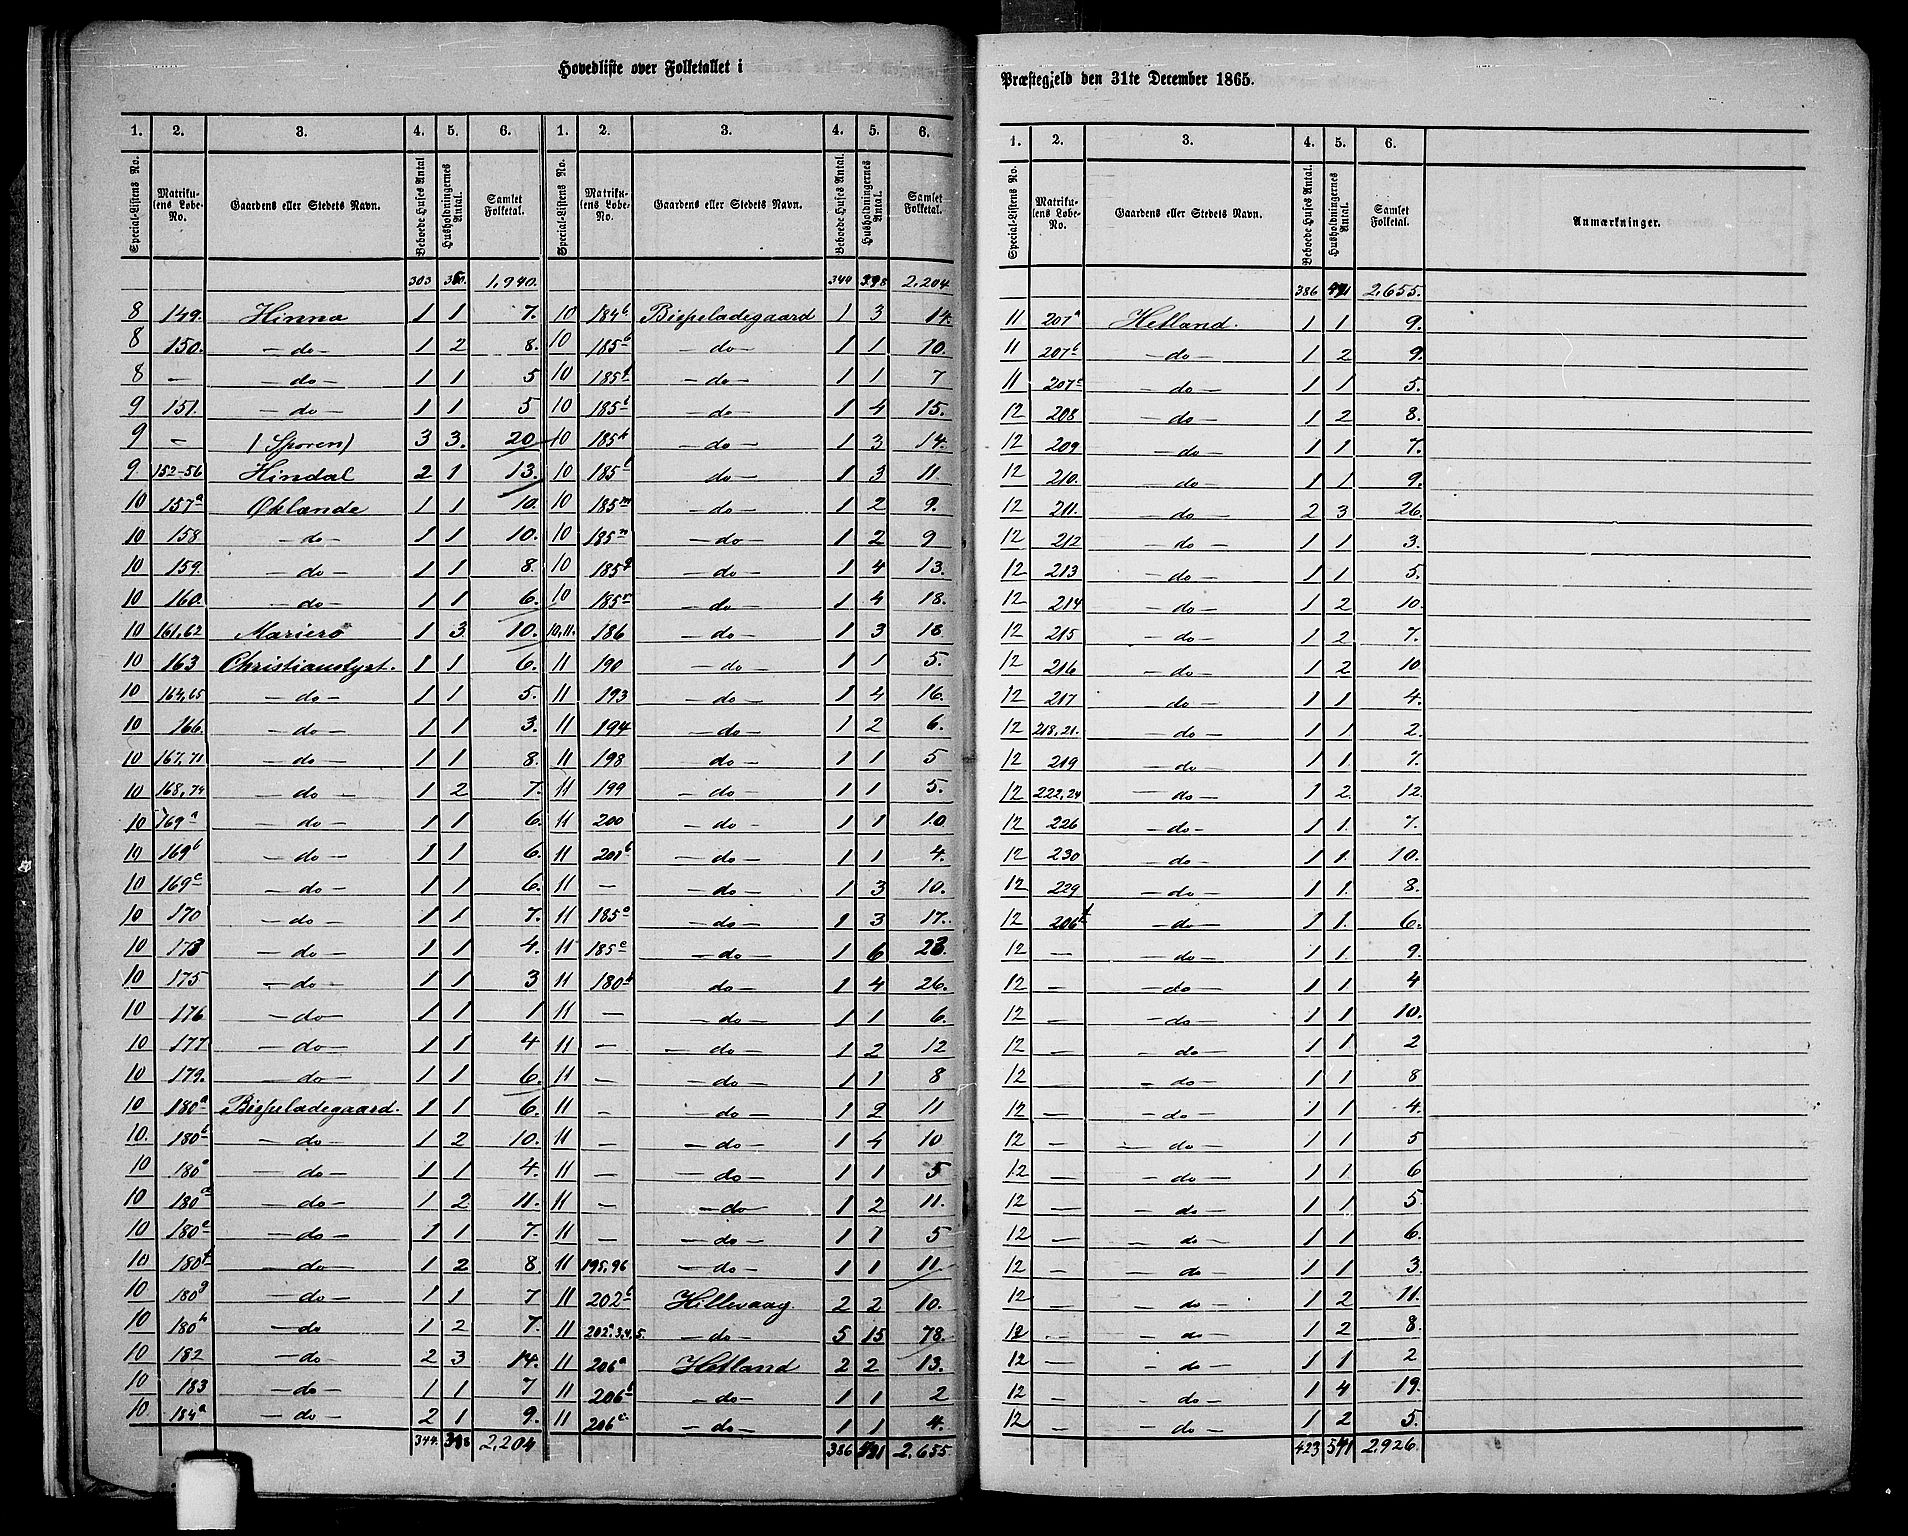 Hovedliste over Folketallet i Præstegjeld den 31te December 1865.
1. 2. 3. 4. 5. 6. 1. 2. 3. 4. 5. 6.
Special-Listens No. Matrikulens Løbe-No. Gaardens eller Stedets Navn. Beboede Huses Antal Husholdningernes Antal. Samlet Folketal. Special-Listens No. Matrikulens Løbe-No. Gaardens eller Stedets Navn. Beboede Huses Antal. Husholdningernes Antal. Samlet Folketal.
303 1,940. 344 398 2,204
8 149. Hinna 1 1 7. 10 184b Bispeladegaard 1 3 14.
8 150. -do- 1 2 8. 10 185b -do- 1 1 10.
8 - -do- 1 1 5 10 185f -do- 1 1 7
9 151. -do- 1 1 5 10 185 -do- 1 4 15.
9 - (Sporen) 3 3. 20 10 185 -do- 1 3 14.
9. 152-56 Hindal 2 1 13. 10 185 do- 1 3 11.
10 157a Øklande 1 1 10. 10 185m -do- 1 2 9.
10 158 -do- 1 1 10. 10 185n -do- 1 2 9
10 159. -do- 1 1 8. 10 185q -do- 1 4 13.
10 160. -do- 1 1 6. 10 185 -do- 1 4 18.
10 161,62 Mariero 1 3. 10. 10,11. 186 -do- 1 3 18
10 163 Christianslyst. 1 1 6. 11 190 -do- 1 1 5.
10 164,65 -do- 1 1 5. 11 193 -do- 1 4 16.
10 166. -do- 1 1 3. 11 194 -do- 1 2 6.
10 167,71 -do- 1 1 8. 11 198 do- 1 1 5
10 168,74 -do- 1 2 7. 11 199 -do- 1 1 5.
10 169a -do- 1 1 6. 11 200 -do- 1 1 10
10 169b -do- 1 1 6. 11 201b -do- 1 1 4.
10 169c -do- 1 1 6. 11 - -do- 1 3 10.
10 170 -do- 1 1 7. 11 185 -do- 1 3 17.
10 173 -do- 1 1 4. 11 185e -do- 1 6 23.
10 175 -do- 1 1 3 11 180 do- 1 4 26.
10 176 -do- 1 1 1 11 - -do- 1 1 6.
10 177 -do- 1 1 4 11 - -do- 1 2 12
10 179. -do- 1 1 6. 11 - -do- 1 1 8
10 180a Bispeladegaard. 1 1 6. 11 - -do- 1 2 11
10. 180b -do- 1 2 10. 11 - -do- 1 4 10
10 180 -do- 1 1 4. 11 - -do- 1 1 5
10 180 -do- 1 2 11. 11 - -do 1 2 11.
10 180e -do- 1 1 7. 11 - -do- 1 1 5
10 180f -do- 1 2 8. 11 195,96 -do- 1 1 11
10 180g -do- 1 1 7 11 202b Hillevaag. 2 2 10.
10 180h -do 1 2 7. 11 202a.3.4.5. -do- 5 15 78.
10 182 -do- 2 3 14. 11 206a Hetland 2 2 13.
10 183 -do- 1 1 7 11 206b -do- 1 1 2
10. 184a -do- 2 1 9. 11 206c -do- 1 1 4.
344. 398 2,204 386 2,655
1. 2. 3. 4. 5. 6.
Special-Listens No. Matrikulens Løbe-No. Gaardens eller Stedets Navn. Beboede Huses Antal. Husholdningernes Antal. Samlet Folketal. Anmærkninger.
386 2,655.
11 207a Hetland. 1 1 9.
11 207b -do- 1 2 9.
11 207c -do- 1 1 5.
12 208 -do- 1 2 8.
12 209 -do- 1 1 7.
12 210. -do- 1 1 9.
12 211. -do- 2 3 26.
12 212 -do- 1 1 3.
12 213 -do- 1 1 5.
12 214 -do- 1 2 10.
12 215 -do- 1 2 7.
12 216 -do- 1 2 10
12 217 -do- 1 1 4.
12 218,21. -do- 1 1 2.
12 219 -do- 1 1 7.
12 222,24 -do- 1 2. 12.
12 226 -do- 1 1. 7.
12 230 -do- 1 1. 10.
12 229 -do- 1 1. 8.
12 206 -do- 1 1. 6.
12 - -do- 1 1. 9.
12 - -do- 1 1 4
12 - -do- 1 1 10.
12 - -do- 1 1 2
12 - -do- 1 1 8
12 - -do- 1 1 4.
12 - -do- 1 1 5
12 - -do- 1 1 6
12 - -do- 1 1 5.
12 - do- 1 1 6.
12 - -do- 1 1 3.
12 - -do- 1 2 11.
12 - -do- 1 2 8.
12 - -do- 1 1 2
12 - -do- 1 4 19.
12 - -do- 1 2 5.
423 2,926.